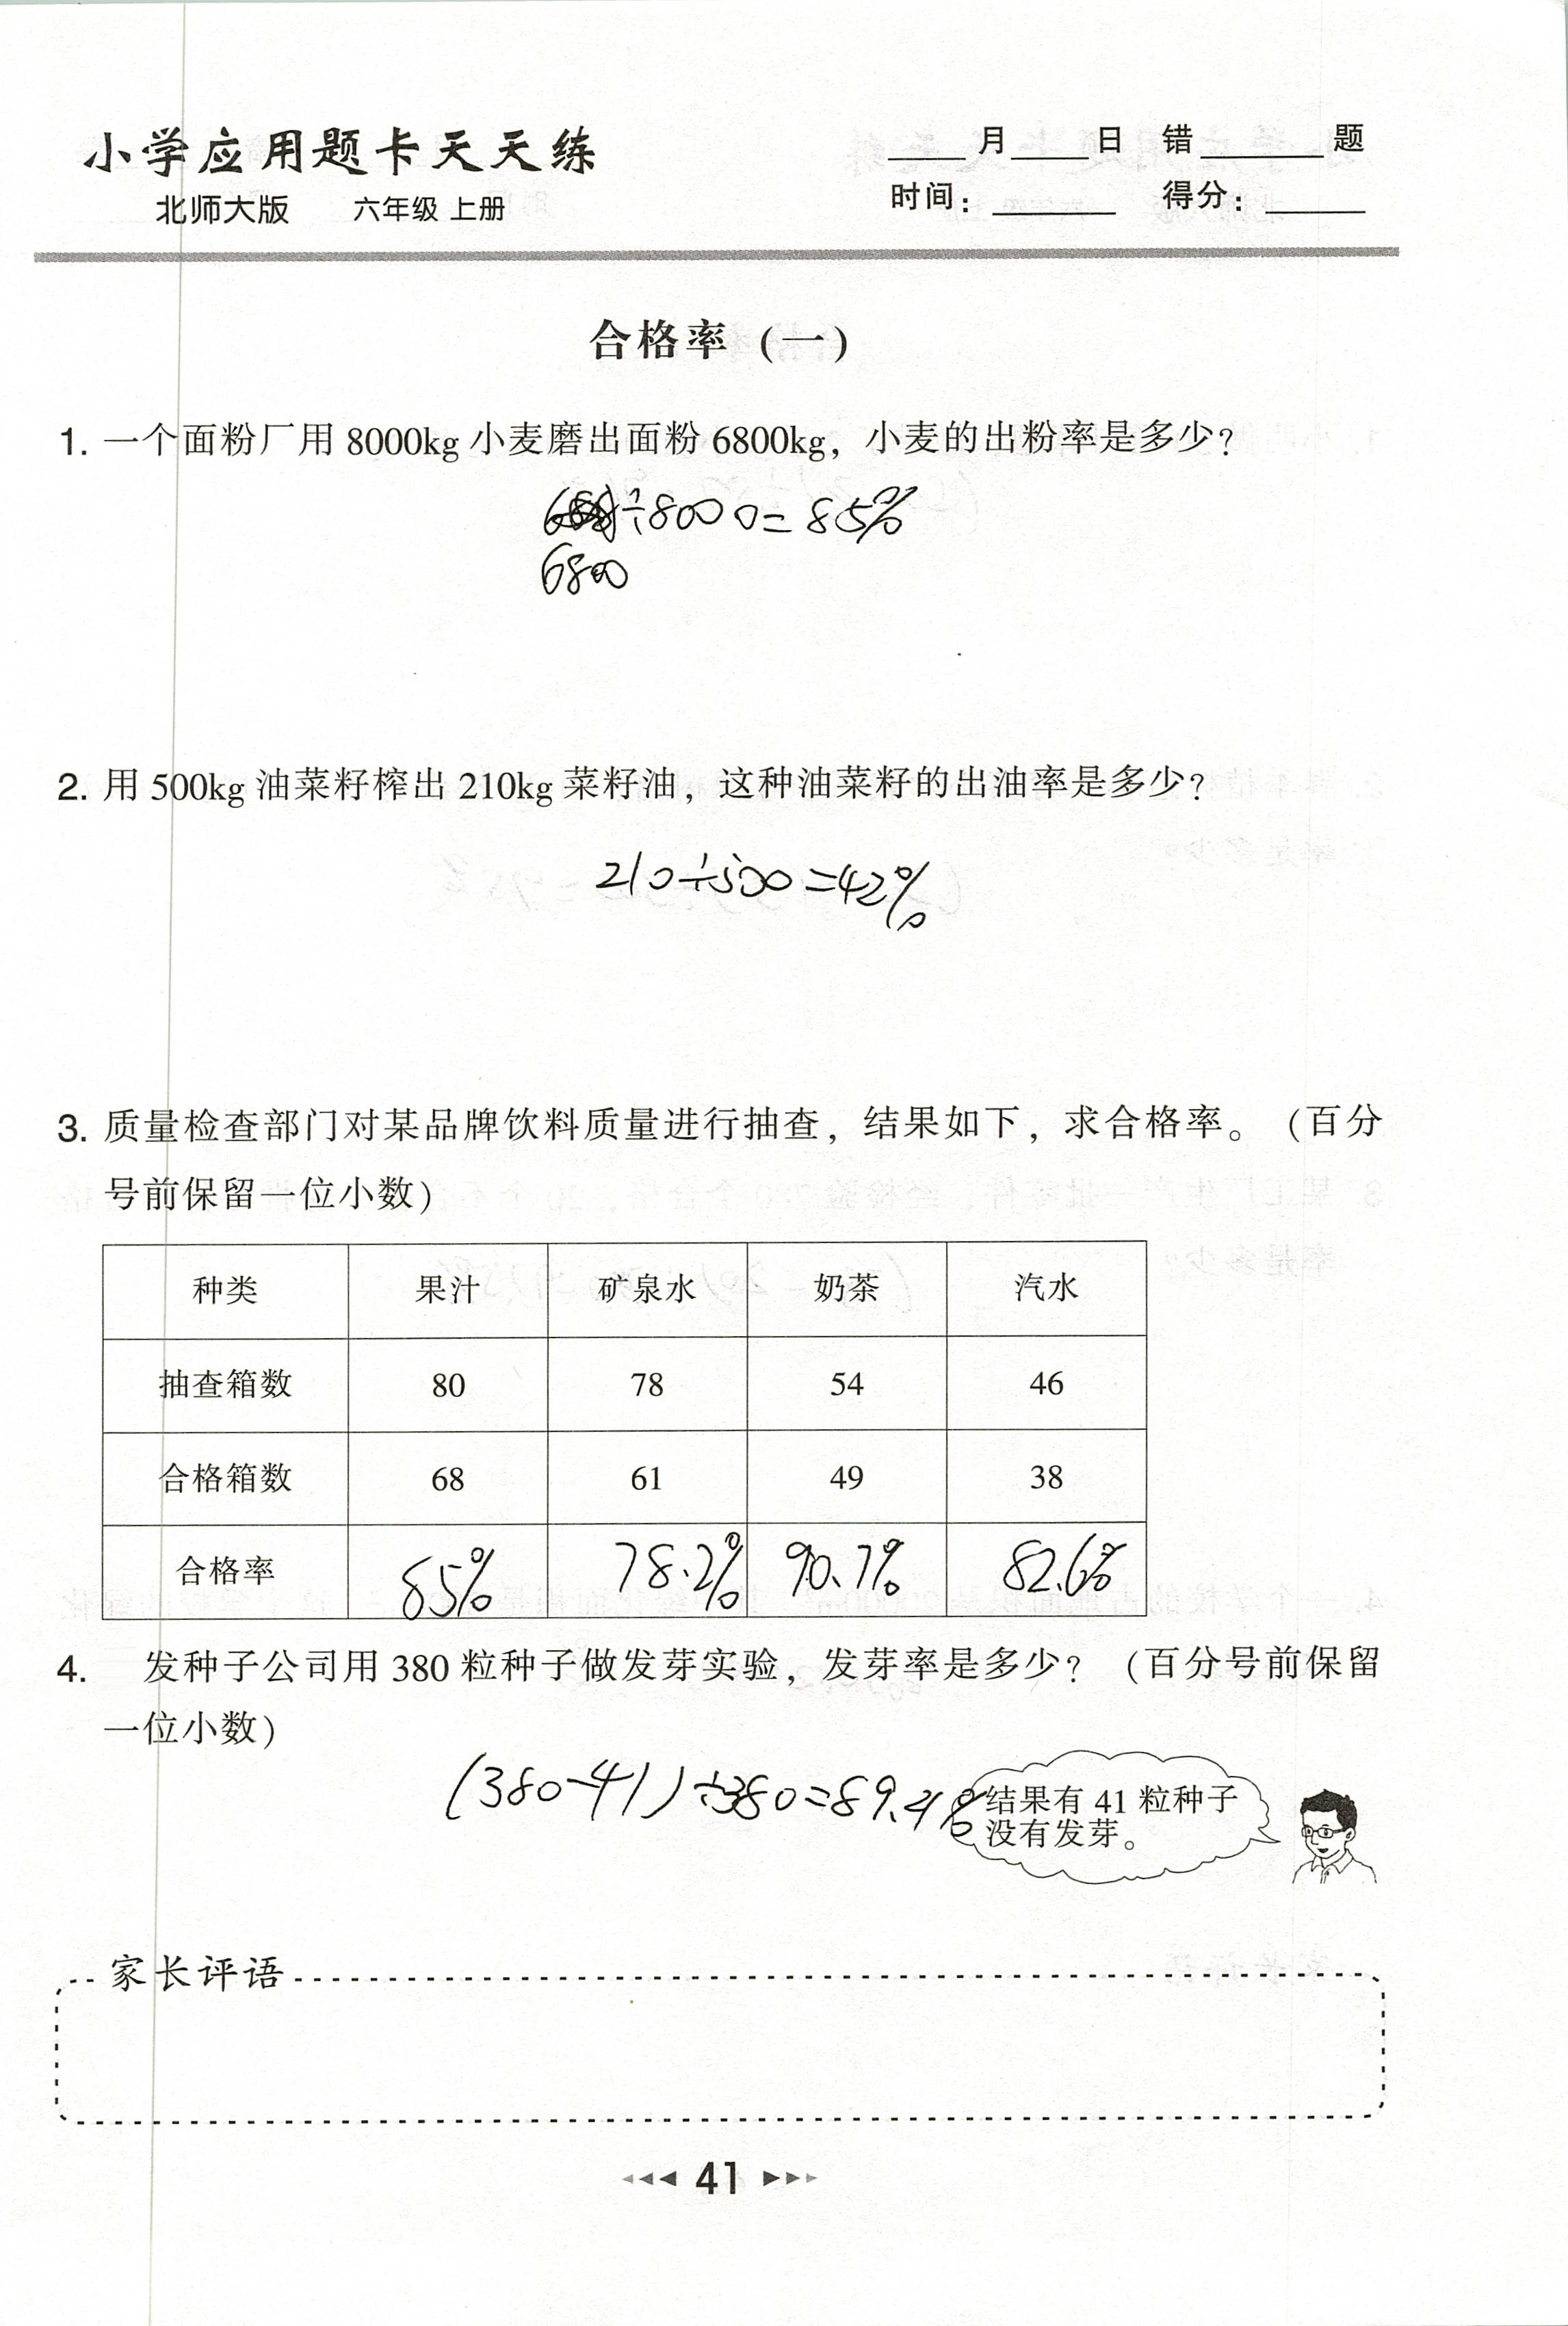 小学应用题卡天天练
北师大版 六年级 上册
____月____日 错______题
时间：______ 得分：_____
合格率（一）
1. 一个面粉厂用 8000kg 小麦磨出面粉 6800kg，小麦的出粉率是多少？
÷8000=85%
6800
2. 用 500kg 油菜籽榨出 210kg 菜籽油，这种油菜籽的出油率是多少？
210÷500=42%
3. 质量检查部门对某品牌饮料质量进行抽查，结果如下，求合格率。（百分
号前保留一位小数）
种类 果汁 矿泉水 奶茶 汽水
抽查箱数 80 78 54 46
合格箱数 68 61 49 38
合格率 85% 78.2% 90.7% 82.6%
4. 发种子公司用 380 粒种子做发芽实验，发芽率是多少？（百分号前保留
一位小数）
(380-41)÷380=89.2%
结果有 41 粒种子
没有发芽。
家长评语
41